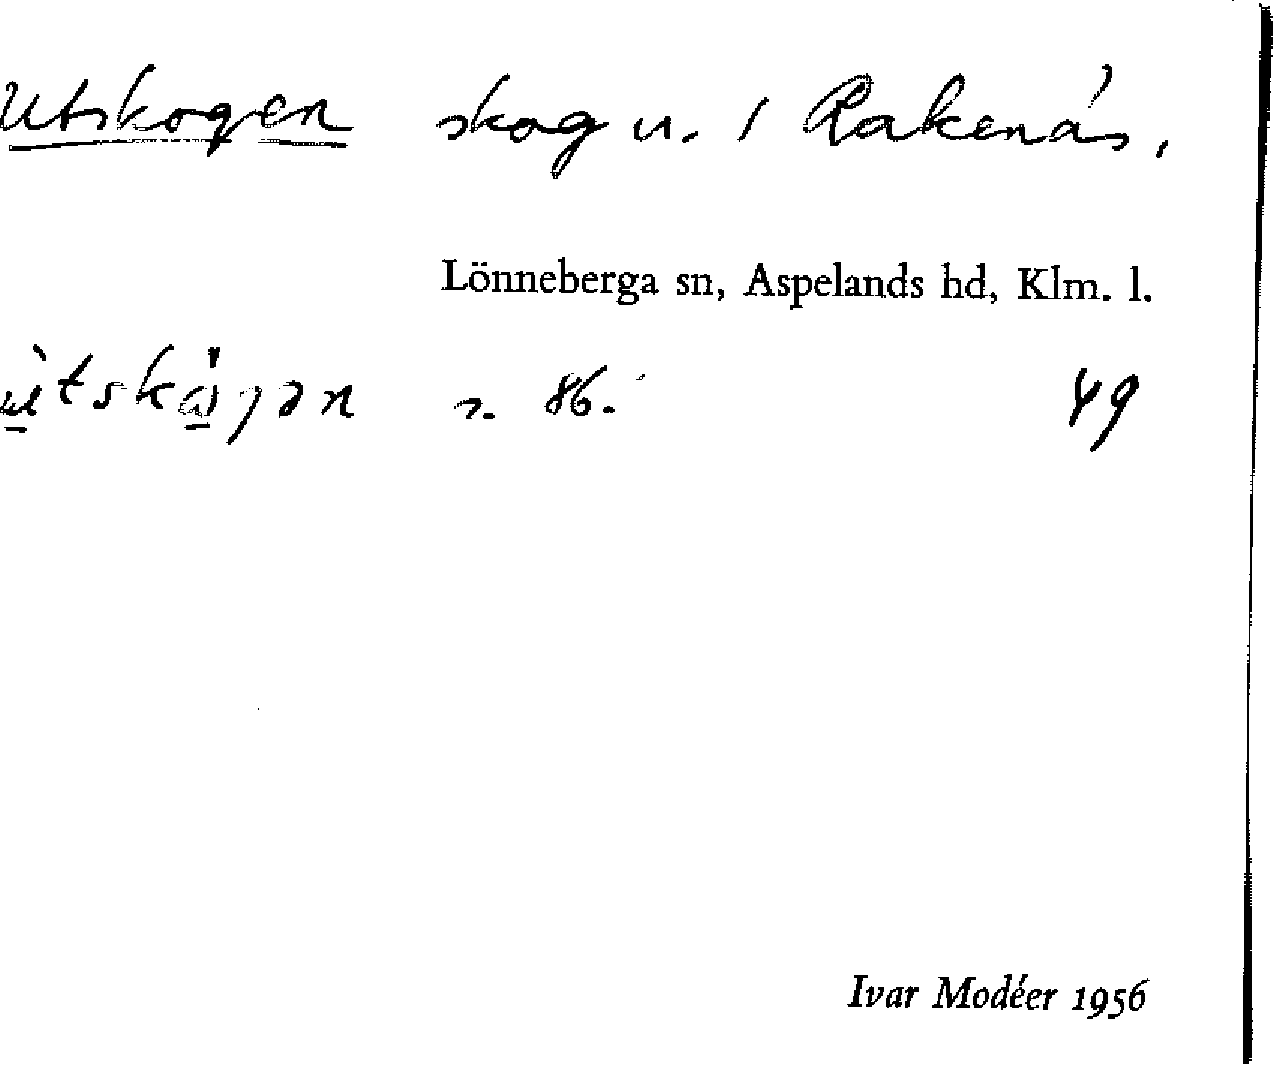 Utskogen skog u. / Rakenäs,
Lönneberga sn, Aspelands hd, Klm. l.
s. 86. 49
Ivar Modéer 1956